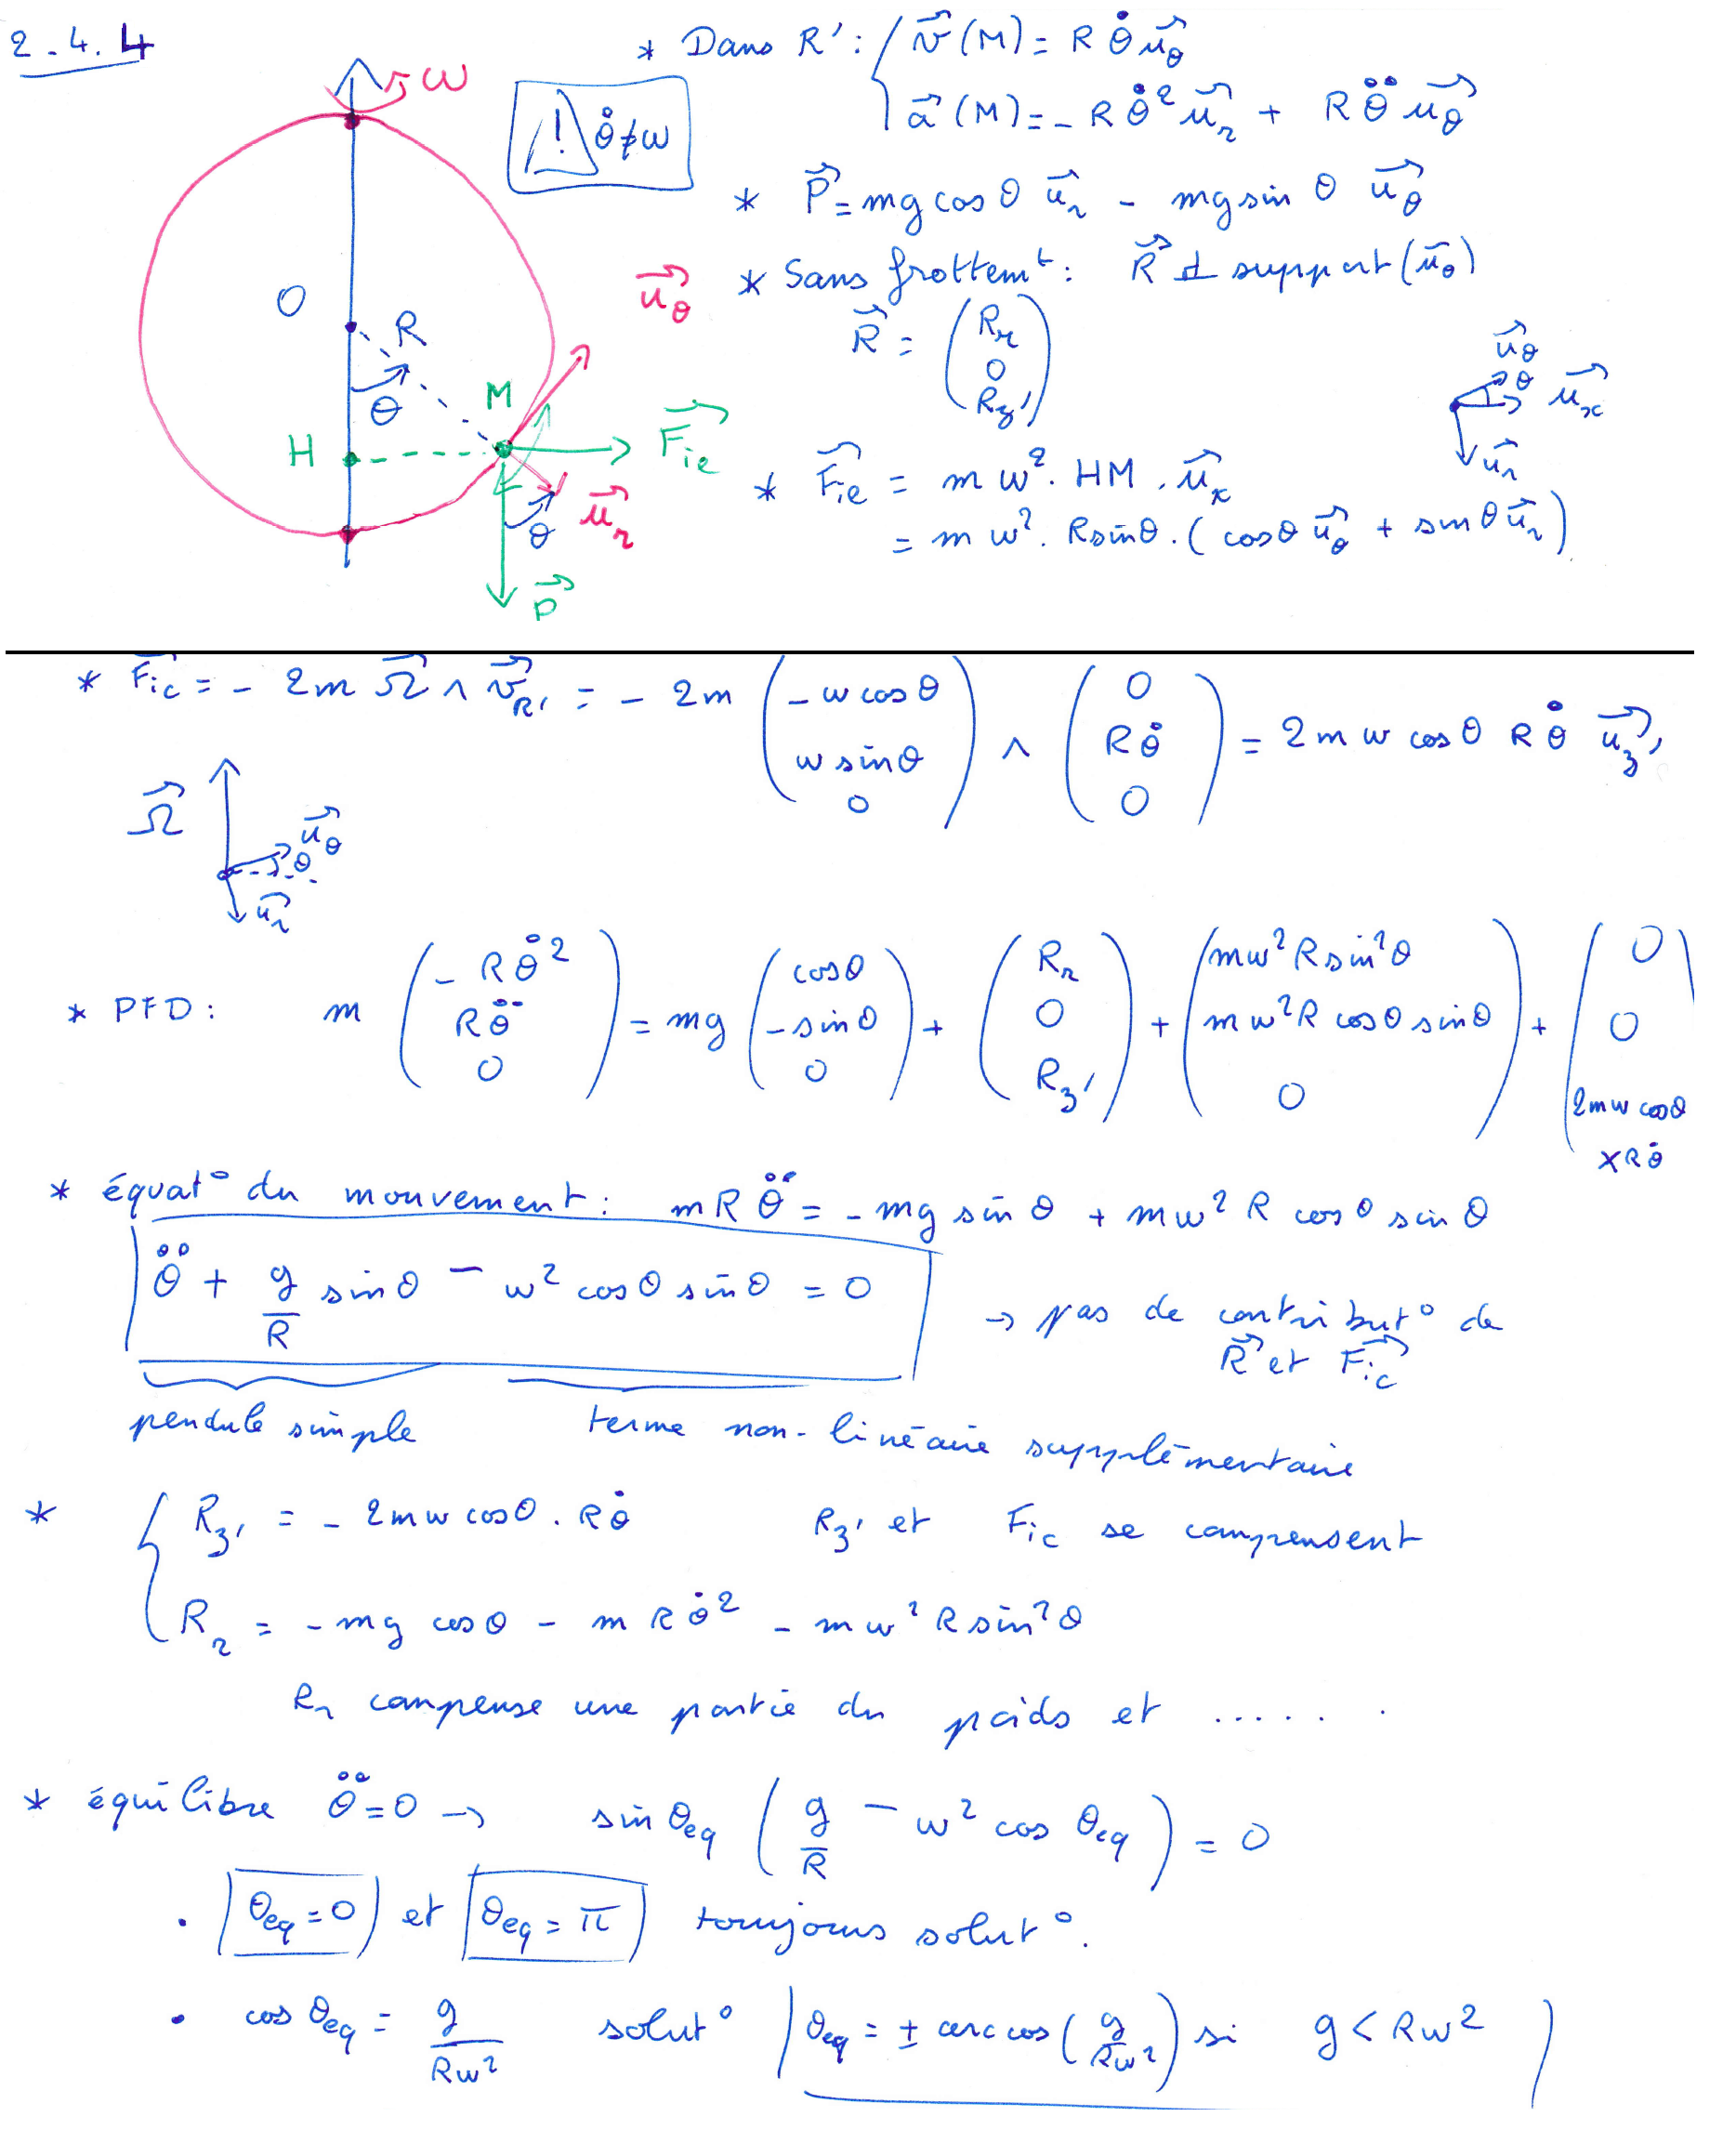 2.4.4
ω
⚠ θ̇ ≠ ω
* Dans R' : { v⃗(M) = R θ̇ u⃗θ
a⃗(M) = - R θ̇² u⃗r + R θ̈ u⃗θ
* P⃗ = mg cos θ u⃗r - mg sin θ u⃗θ
* Sans frottemᵗ : R⃗ ⊥ support (u⃗θ)
R⃗ = ( Rr
0
Rz' )
O
R
θ
H
M
u⃗θ
F⃗ie
u⃗r
θ
P⃗
u⃗θ
θ
u⃗x
u⃗r
* F⃗ie = m ω² . HM . u⃗x
= m ω² . R sin θ . ( cos θ u⃗θ + sin θ u⃗r )
* F⃗ic = - 2m Ω⃗ ∧ v⃗R' = - 2m ( - ω cos θ ; ω sin θ ; 0 ) ∧ ( 0 ; R θ̇ ; 0 ) = 2 m ω cos θ R θ̇ u⃗z'
Ω⃗
u⃗θ
θ
u⃗r
* PFD : m ( - R θ̇² ; R θ̈ ; 0 ) = mg ( cos θ ; - sin θ ; 0 ) + ( Rr ; 0 ; Rz' ) + ( mω² R sin² θ ; m ω² R cos θ sin θ ; 0 ) + ( 0 ; 0 ; 2mω cos θ × R θ̇ )
* équat° du mouvement : m R θ̈ = - mg sin θ + m ω² R cos θ sin θ
θ̈ + g/R sin θ - ω² cos θ sin θ = 0
→ pas de contribut° de
R⃗ et F⃗ic
pendule simple
terme non-linéaire supplémentaire
* { Rz' = - 2mω cos θ . R θ̇ Rz' et Fic se compensent
Rr = - mg cos θ - m R θ̇² - m ω² R sin² θ
Rr compense une partie du poids et ......
* équilibre θ̈ = 0 → sin θeq ( g/R - ω² cos θeq ) = 0
. θeq = 0 et θeq = π toujours solut°.
. cos θeq = g/Rω² solut° θeq = ± arccos ( g/Rω² ) si g < Rω²